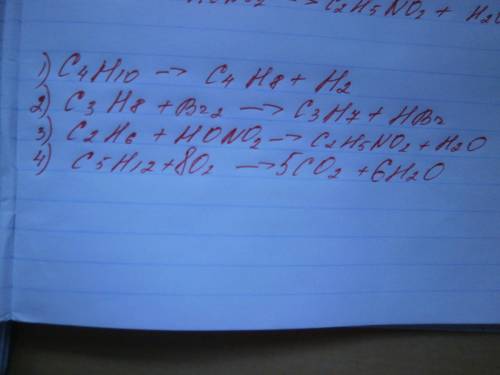 → C2H5NO2 + H2O
1) C4H10 → C4H8 + H2
2) C3H8 + Br2 → C3H7 + HBr
3) C2H6 + HONO2 → C2H5NO2 + H2O
4) C5H12 + 8O2 → 5CO2 + 6H2O